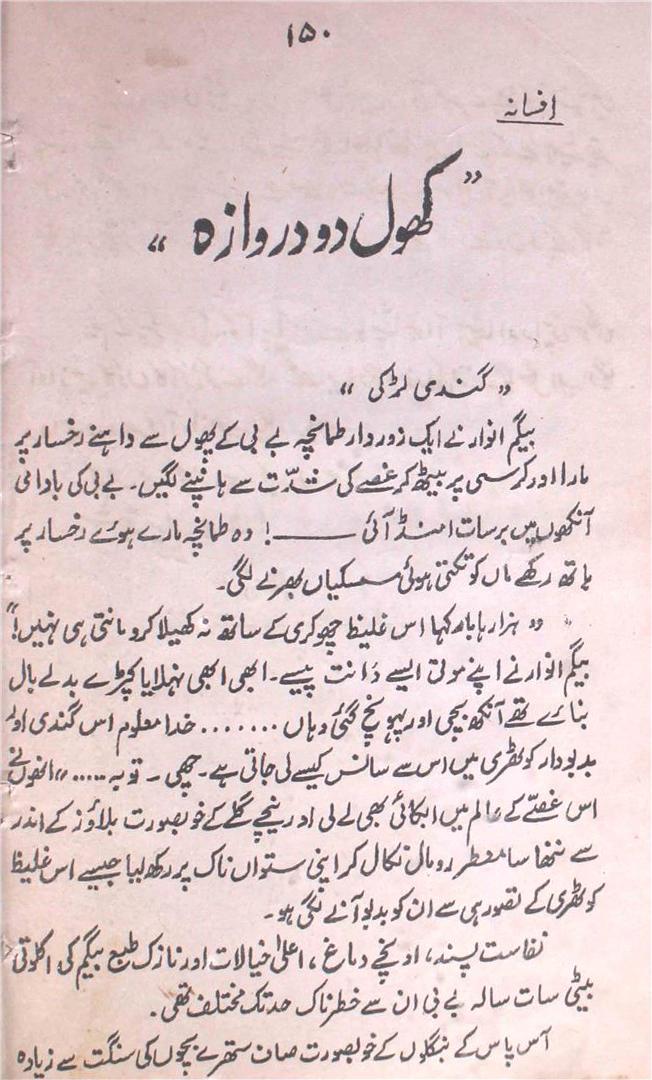 ۱۵۰
افسانہ
”کھول دو دروازہ“
”گندی لڑکی“
بیگم انوار نے ایک زوردار طمانچہ بے بی کے پھول سے داہنے رخسار پر
مارا اور کرسی پر بیٹھ کر غصے کی شدّت سے ہانپنے لگیں۔ بے بی کی بادامی
آنکھوں میں برسات امنڈ آئی ——! وہ طمانچہ مارے ہوئے رخسار پر
ہاتھ رکھے ماں کو تکتی ہوئی سسکیاں بھرنے لگی۔
”ہزارہا بار کہا اس غلیظ چھوکری کے ساتھ نہ کھیلا کرو مانتی ہی نہیں!“
بیگم انوار نے اپنے موتی ایسے دانت پیسے۔ ابھی ابھی نہلایا کپڑے بدلے بال
بنائے تھے آنکھ بچی اور پہونچ گئی وہاں ....... خدا معلوم اس گندی اور
بدبودار کوٹھری میں اس سے سانس کیسے لی جاتی ہے۔ چھی۔ توبہ .....“ انھوں نے
اس غصّے کے عالم میں ابکائی بھی لے لی اور نیچے گلے کے خوبصورت بلاؤز کے اندر
سے ننھا سا معطر رومال نکال کر اپنی ستواں ناک پر رکھ لیا جیسے اس غلیظ
کوٹھری کے تصور ہی سے ان کو بدبو آنے لگی ہو۔
نفاست پسند، اونچے دماغ، اعلیٰ خیالات اور نازک طبع بیگم کی اکلوتی
بیٹی سات سالہ بے بی ان سے خطرناک حد تک مختلف تھی۔
آس پاس کے بنگلوں کے خوبصورت صاف ستھرے بچوں کی سنگت سے زیادہ